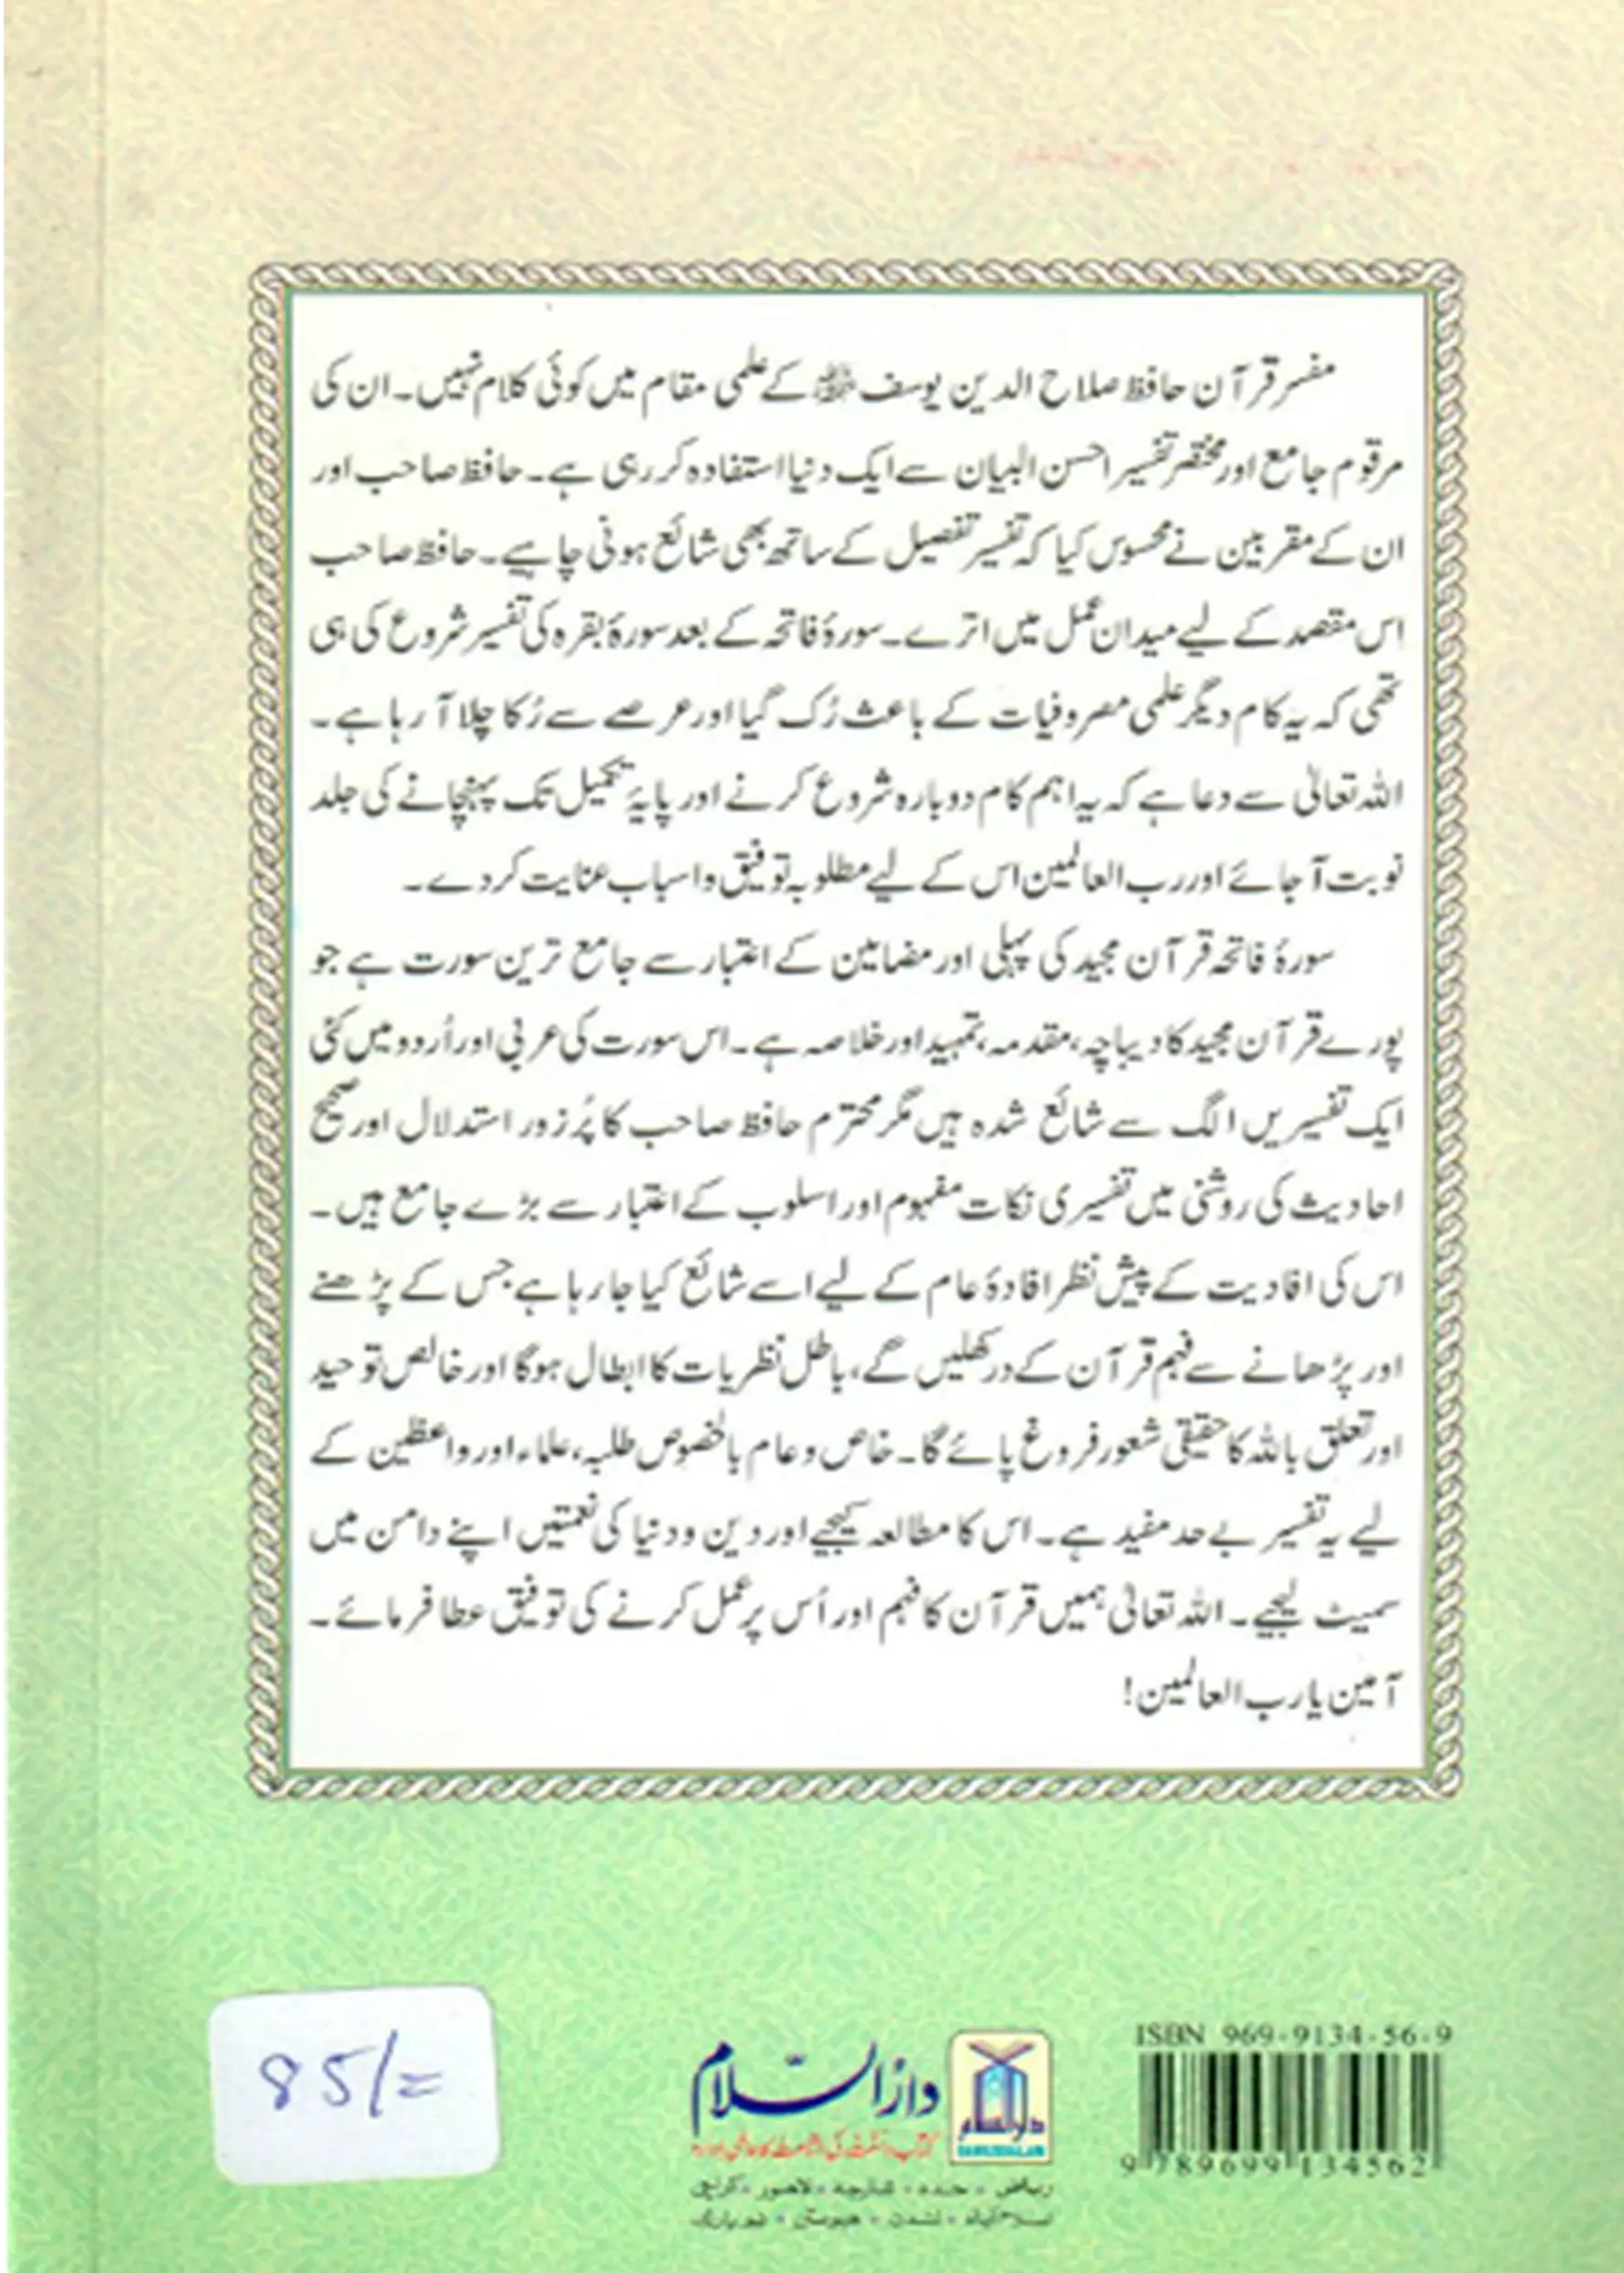 مفسر قرآن حافظ صلاح الدین یوسف ﷾ کے علمی مقام میں کوئی کلام نہیں۔ ان کی
مرقوم جامع اور مختصر تفسیر احسن البیان سے ایک دنیا استفادہ کر رہی ہے۔ حافظ صاحب اور
ان کے مقربین نے محسوس کیا کہ تفسیر تفصیل کے ساتھ بھی شائع ہونی چاہیے۔ حافظ صاحب
اس مقصد کے لیے میدان عمل میں اترے۔ سورۂ فاتحہ کے بعد سورۂ بقرہ کی تفسیر شروع کی ہی
تھی کہ یہ کام دیگر علمی مصروفیات کے باعث رُک گیا اور عرصے سے رُکا چلا آ رہا ہے۔
اللہ تعالیٰ سے دعا ہے کہ یہ اہم کام دوبارہ شروع کرنے اور پایۂ تکمیل تک پہنچانے کی جلد
نوبت آ جائے اور رب العالمین اس کے لیے مطلوبہ توفیق و اسباب عنایت کر دے۔
سورۂ فاتحہ قرآن مجید کی پہلی اور مضامین کے اعتبار سے جامع ترین سورت ہے جو
پورے قرآن مجید کا دیباچہ، مقدمہ، تمہید اور خلاصہ ہے۔ اس سورت کی عربی اور اُردو میں کئی
ایک تفسیریں الگ سے شائع شدہ ہیں مگر محترم حافظ صاحب کا پُرزور استدلال اور صحیح
احادیث کی روشنی میں تفسیری نکات مفہوم اور اسلوب کے اعتبار سے بڑے جامع ہیں۔
اس کی افادیت کے پیش نظر افادۂ عام کے لیے اسے شائع کیا جا رہا ہے جس کے پڑھنے
اور پڑھانے سے فہم قرآن کے در کھلیں گے، باطل نظریات کا ابطال ہوگا اور خالص توحید
اور تعلق باللہ کا حقیقی شعور فروغ پائے گا۔ خاص و عام بالخصوص طلبہ، علماء اور واعظین کے
لیے یہ تفسیر بے حد مفید ہے۔ اس کا مطالعہ کیجیے اور دین و دنیا کی نعمتیں اپنے دامن میں
سمیٹ لیجیے۔ اللہ تعالیٰ ہمیں قرآن کا فہم اور اُس پر عمل کرنے کی توفیق عطا فرمائے۔
آمین یا رب العالمین!
85/=
دارُالسّلام
کتاب و سنت کی اشاعت کا عالمی ادارہ
دارالسلام
DARUSSALAM
ریاض • جدہ • شارجہ • لاہور • کراچی
اسلام آباد • لندن • ہیوسٹن • نیو یارک
ISBN 969-9134-56-9
9 789699 134562